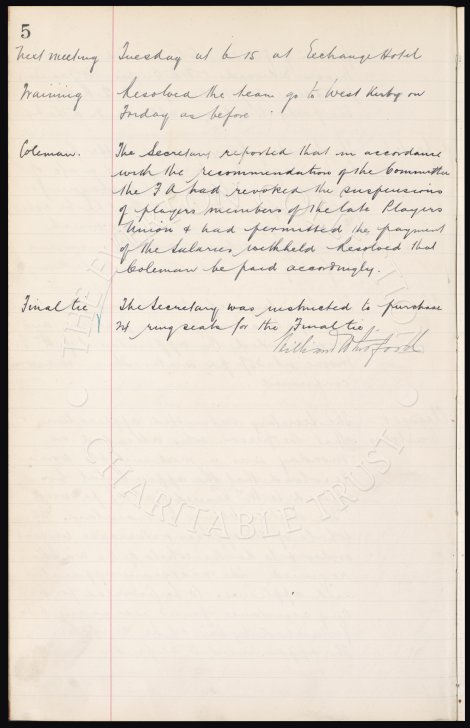 5
Next meeting Tuesday at 6 15 at Exchange Hotel
Training Resolved the team go to West Kirby on
Friday as before.
Coleman. The Secretary reported that in accordance
with the recommendation of the Committee
the F A had revoked the suspensions
of players members of the late Players
Union & had permitted the payment
of the Salaries withheld Resolved that
Coleman be paid accordingly.
Final tie The Secretary was instructed to purchase
24 ring seats for the Final tie
William Whitford
CHARITABLE TRUST